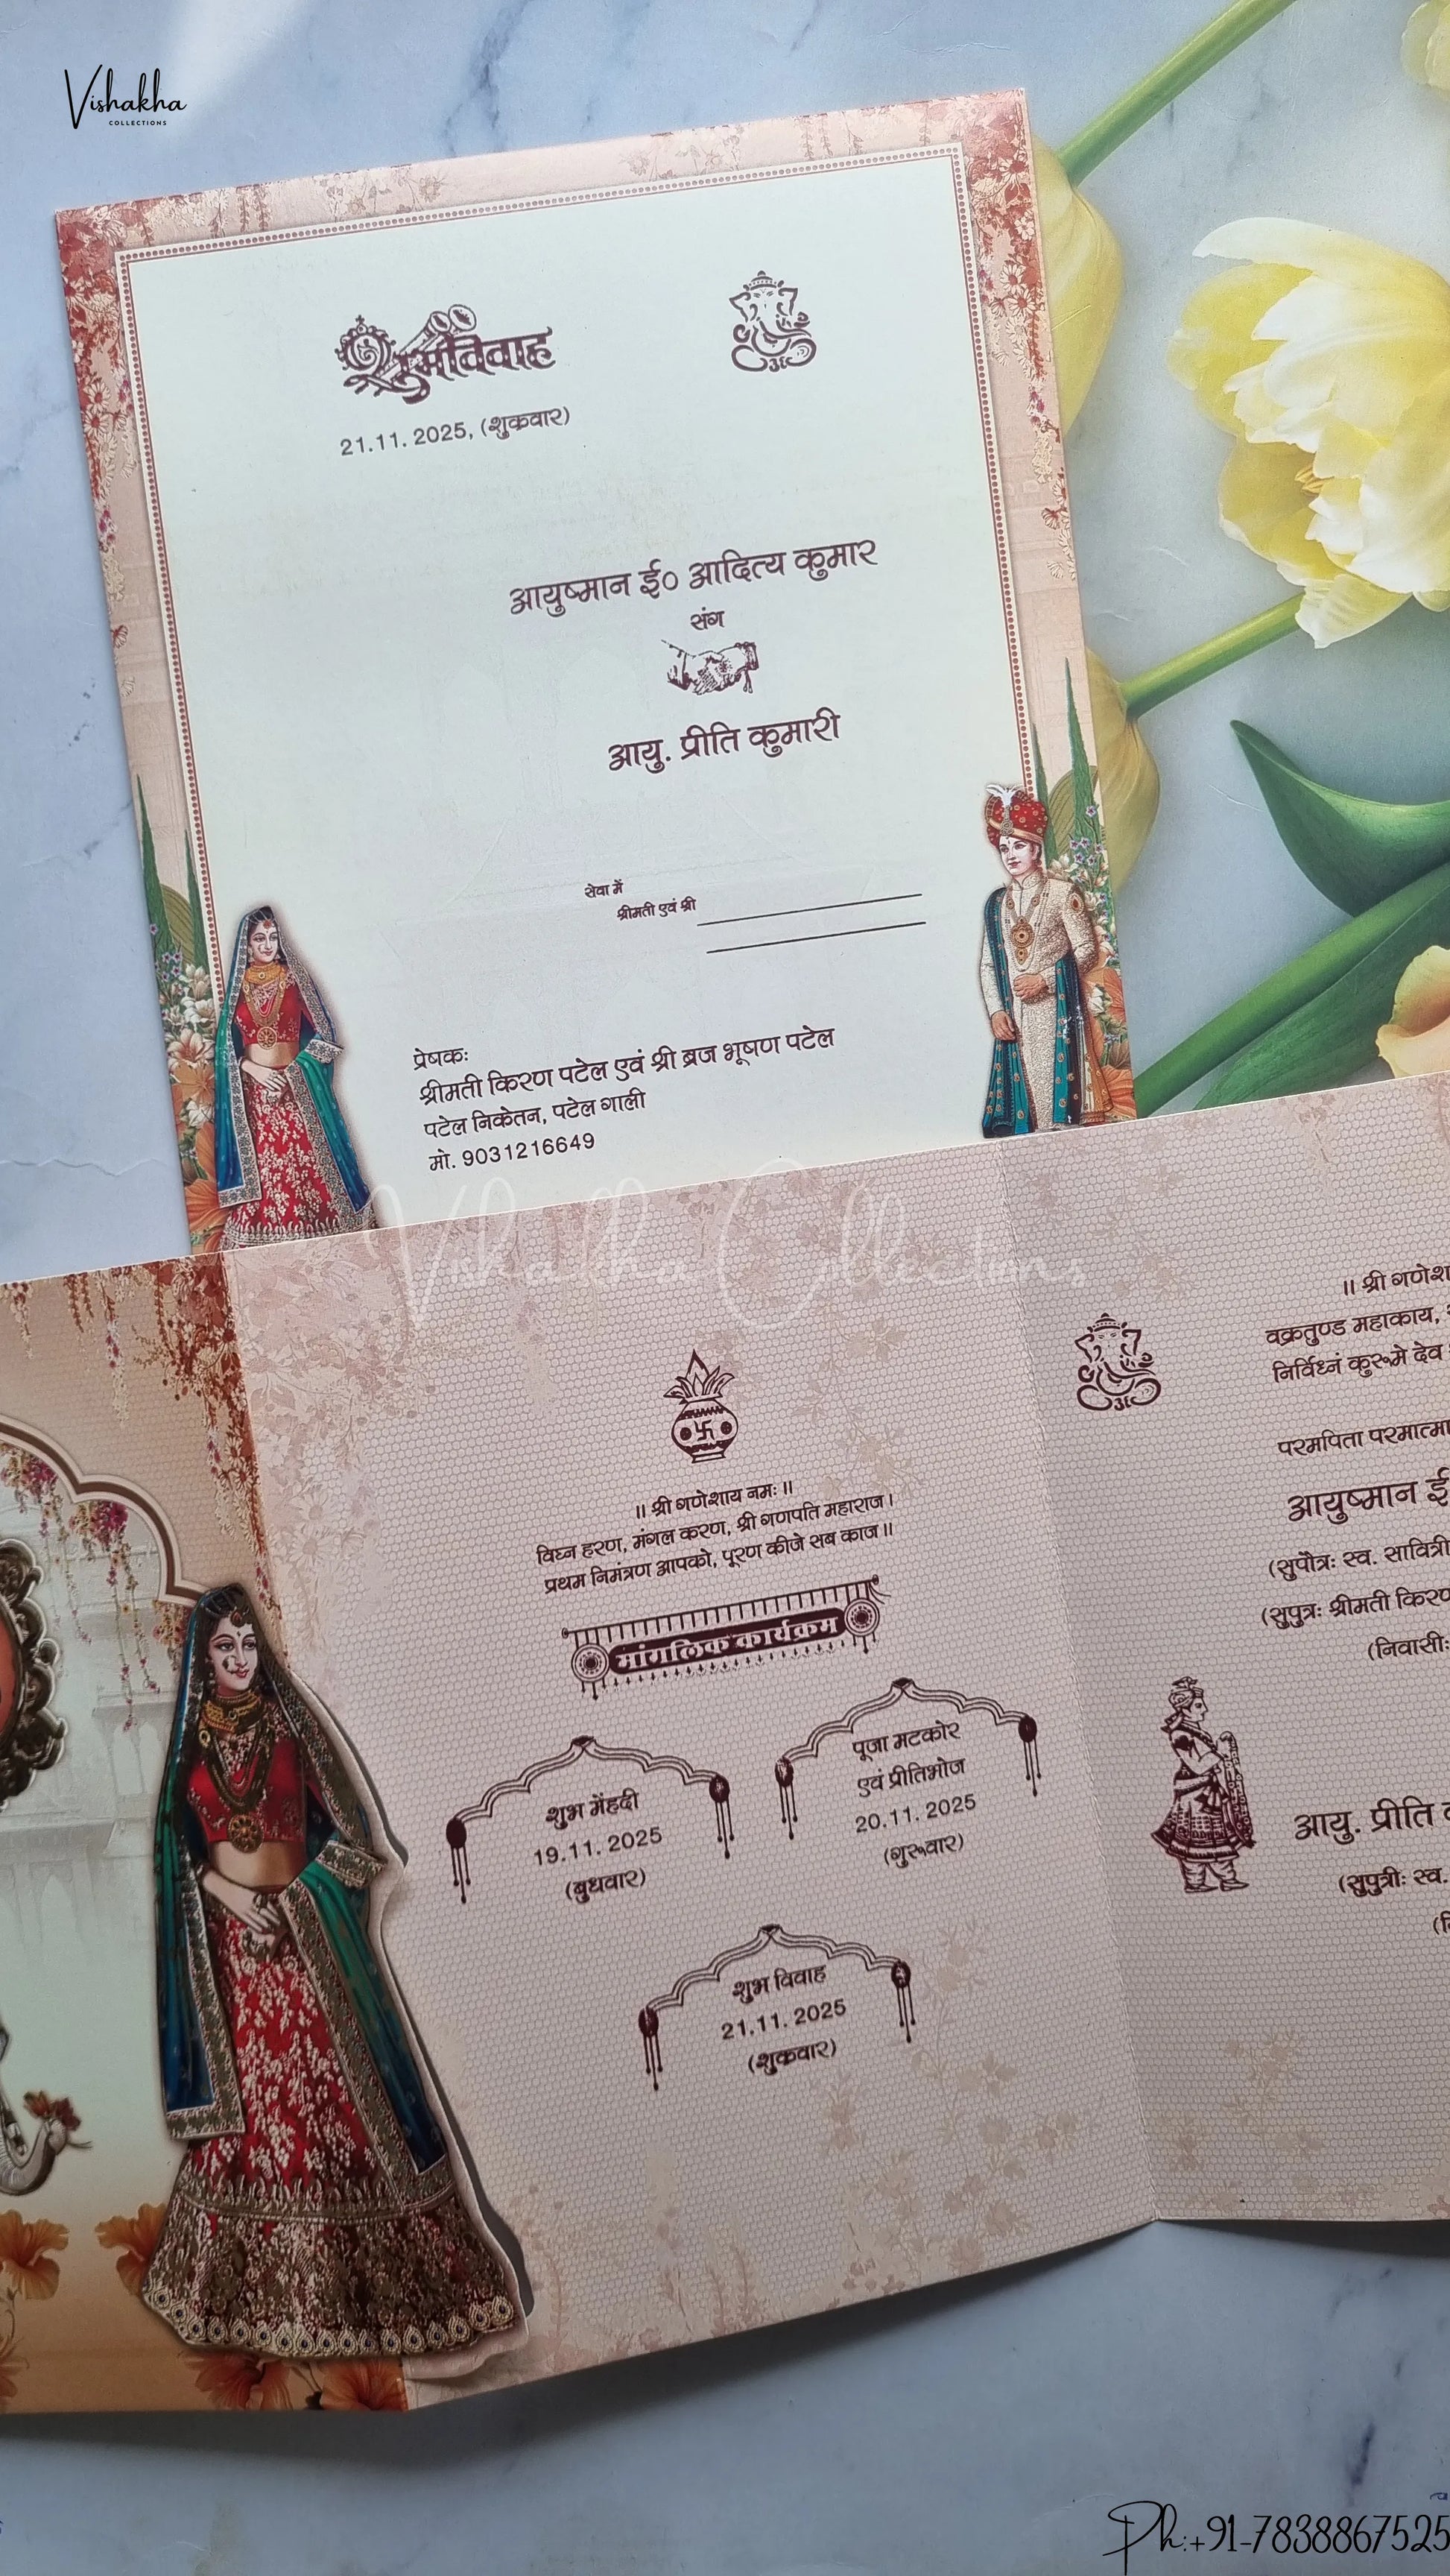 Vishakha
COLLECTIONS
शुभविवाह
21.11.2025, (शुक्रवार)
आयुष्मान ई० आदित्य कुमार
संग
आयु. प्रीति कुमारी
सेवा में
श्रीमती एवं श्री
प्रेषकः
श्रीमती किरण पटेल एवं श्री ब्रज भूषण पटेल
पटेल निकेतन, पटेल गाली
मो. 9031216649
Vishakha Collections
|| श्री गणेशाय नमः ||
विघ्न हरण, मंगल करण, श्री गणपति महाराज।
प्रथम निमंत्रण आपको, पूरण कीजे सब काज।।
मांगलिक कार्यक्रम
शुभ मेंहदी
19.11.2025
(बुधवार)
पूजा मटकोर
एवं प्रीतिभोज
20.11.2025
(गुरूवार)
शुभ विवाह
21.11.2025
(शुक्रवार)
|| श्री गणेशा
वक्रतुण्ड महाकाय,
निर्विघ्नं कुरूमे देव
परमपिता परमात्मा
आयुष्मान ई
(सुपौत्रः स्व. सावित्री
(सुपुत्रः श्रीमती किरण
(निवासीः
आयु. प्रीति
(सुपुत्रीः स्व.
Ph:+91-7838867525